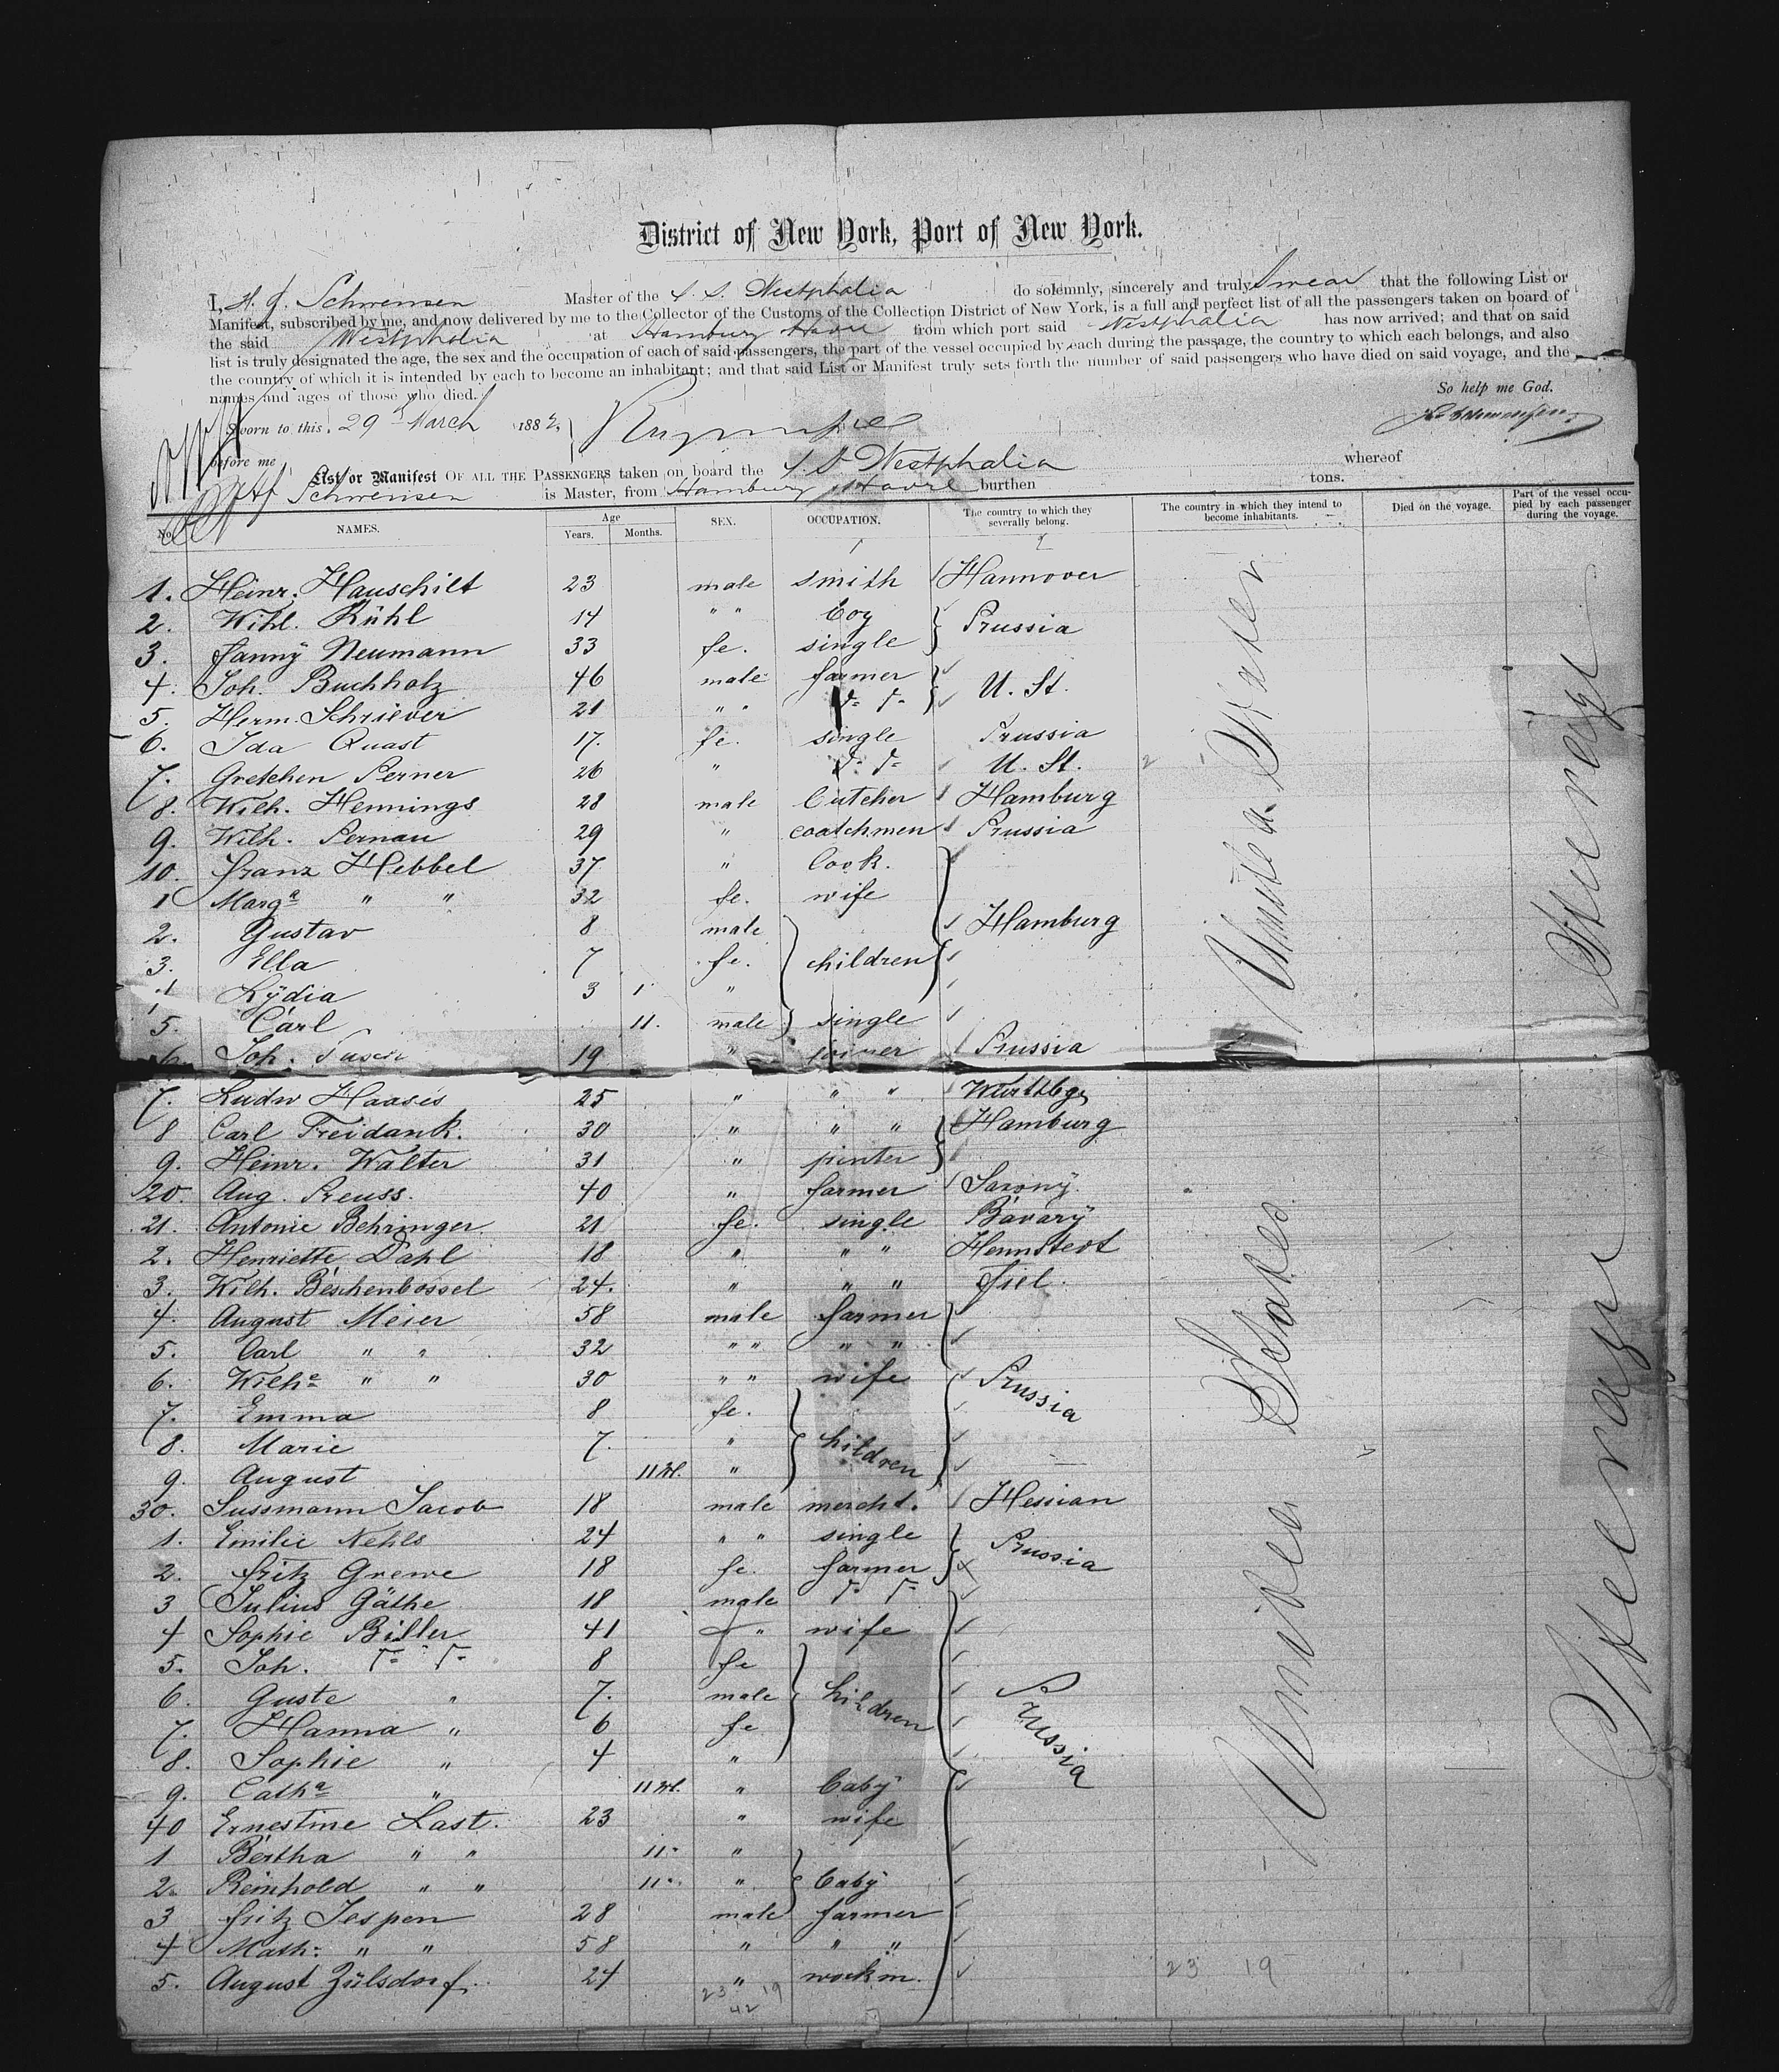 District of New York, Port of New York.
I, H. J. Schwensen Master of the S. S. Westphalia do solemnly, sincerely and truly Swear that the following List or
Manifest, subscribed by me, and now delivered by me to the Collector of the Customs of the Collection District of New York, is a full and perfect list of all the passengers taken on board of
the said Westphalia at Hamburg Havre from which port said Westphalia has now arrived; and that on said
list is truly designated the age, the sex and the occupation of each of said passengers, the part of the vessel occupied by each during the passage, the country to which each belongs, and also
the country of which it is intended by each to become an inhabitant; and that said List or Manifest truly sets forth the number of said passengers who have died on said voyage, and the
names and ages of those who died.
So help me God.
Sworn to this 29 March 1882,
before me
List or Manifest OF ALL THE PASSENGERS taken on board the S. S. Westphalia whereof
Schwensen is Master, from Hamburg Havre burthen tons.
No. NAMES. Age Years. Months. SEX. OCCUPATION. The country to which they severally belong. The country in which they intend to become inhabitants. Died on the voyage. Part of the vessel occupied by each passenger during the voyage.
1. Heinr. Hauschilt 23 male smith Hannover
2. Wihl. Rühl 14 " " boy
Prussia
3. Fanny Neumann 33 fe. single
4. Joh. Buchholz 46 male farmer
U. St.
5. Herm. Schriever 21 " "
6. Ida Quast 17. fe. single Prussia
7. Gretchen Perner 26 " U. St.
8. Wilh. Hennings 28 male butcher Hamburg
9. Wilh. Pernau 29 " coatchmen Prussia
10. Franz Hebbel 37 " Cook.
1 Marga " " 32 fe. wife
2. Gustav 8 male Hamburg
3. Ella 7 fe. children
4 Lydia 3 1 "
5. Carl 11. male single
6. Joh. 19 " joiner Prussia
7. Ludw Haasis 25 " " " Württbg
8 Carl Freidank. 30 " " " Hamburg
9. Heinr. Walter 31 " pinter
20. Aug. Preuss. 40 " farmer Saxony
21. Antonie Behringer 21 fe. single Bavary
2. Henriette Dahl 18 " " " Hennstedt
3. Wilh. Beschenbossel 24. " " " Fiel.
4. August Meier 58 male farmer
5. Carl " " 32 " " " "
6. Wilhe " " 30 " " wife Prussia
7. Emma 8 fe.
8. Marie 7. " children
9. August 11 M. "
30. Sussmann Jacob 18 male mercht. Hessian
1. Emilie Nehls 24 " " single
Prussia
2. Fritz Grewe 18 fe. farmer
3 Julius Gäthe 18 male
4 Sophie Biller 41 " wife
5. Joh. 8 fe
6. Guste " 7. male children Prussia
7. Hanna " 6 fe
8. Sophie " 4 "
9. Catha " 11 M. " baby
40 Ernestine Last. 23 " wife
1 Bertha " " 11 "
2. Reinhold " " 11 " baby
3 Fritz Jespen 28 male farmer
4 Math: " " 58 " " "
5. August Zülsdorf. 24 " workm.
United States
United States
Steerage
Steerage
23 19
42
23 19